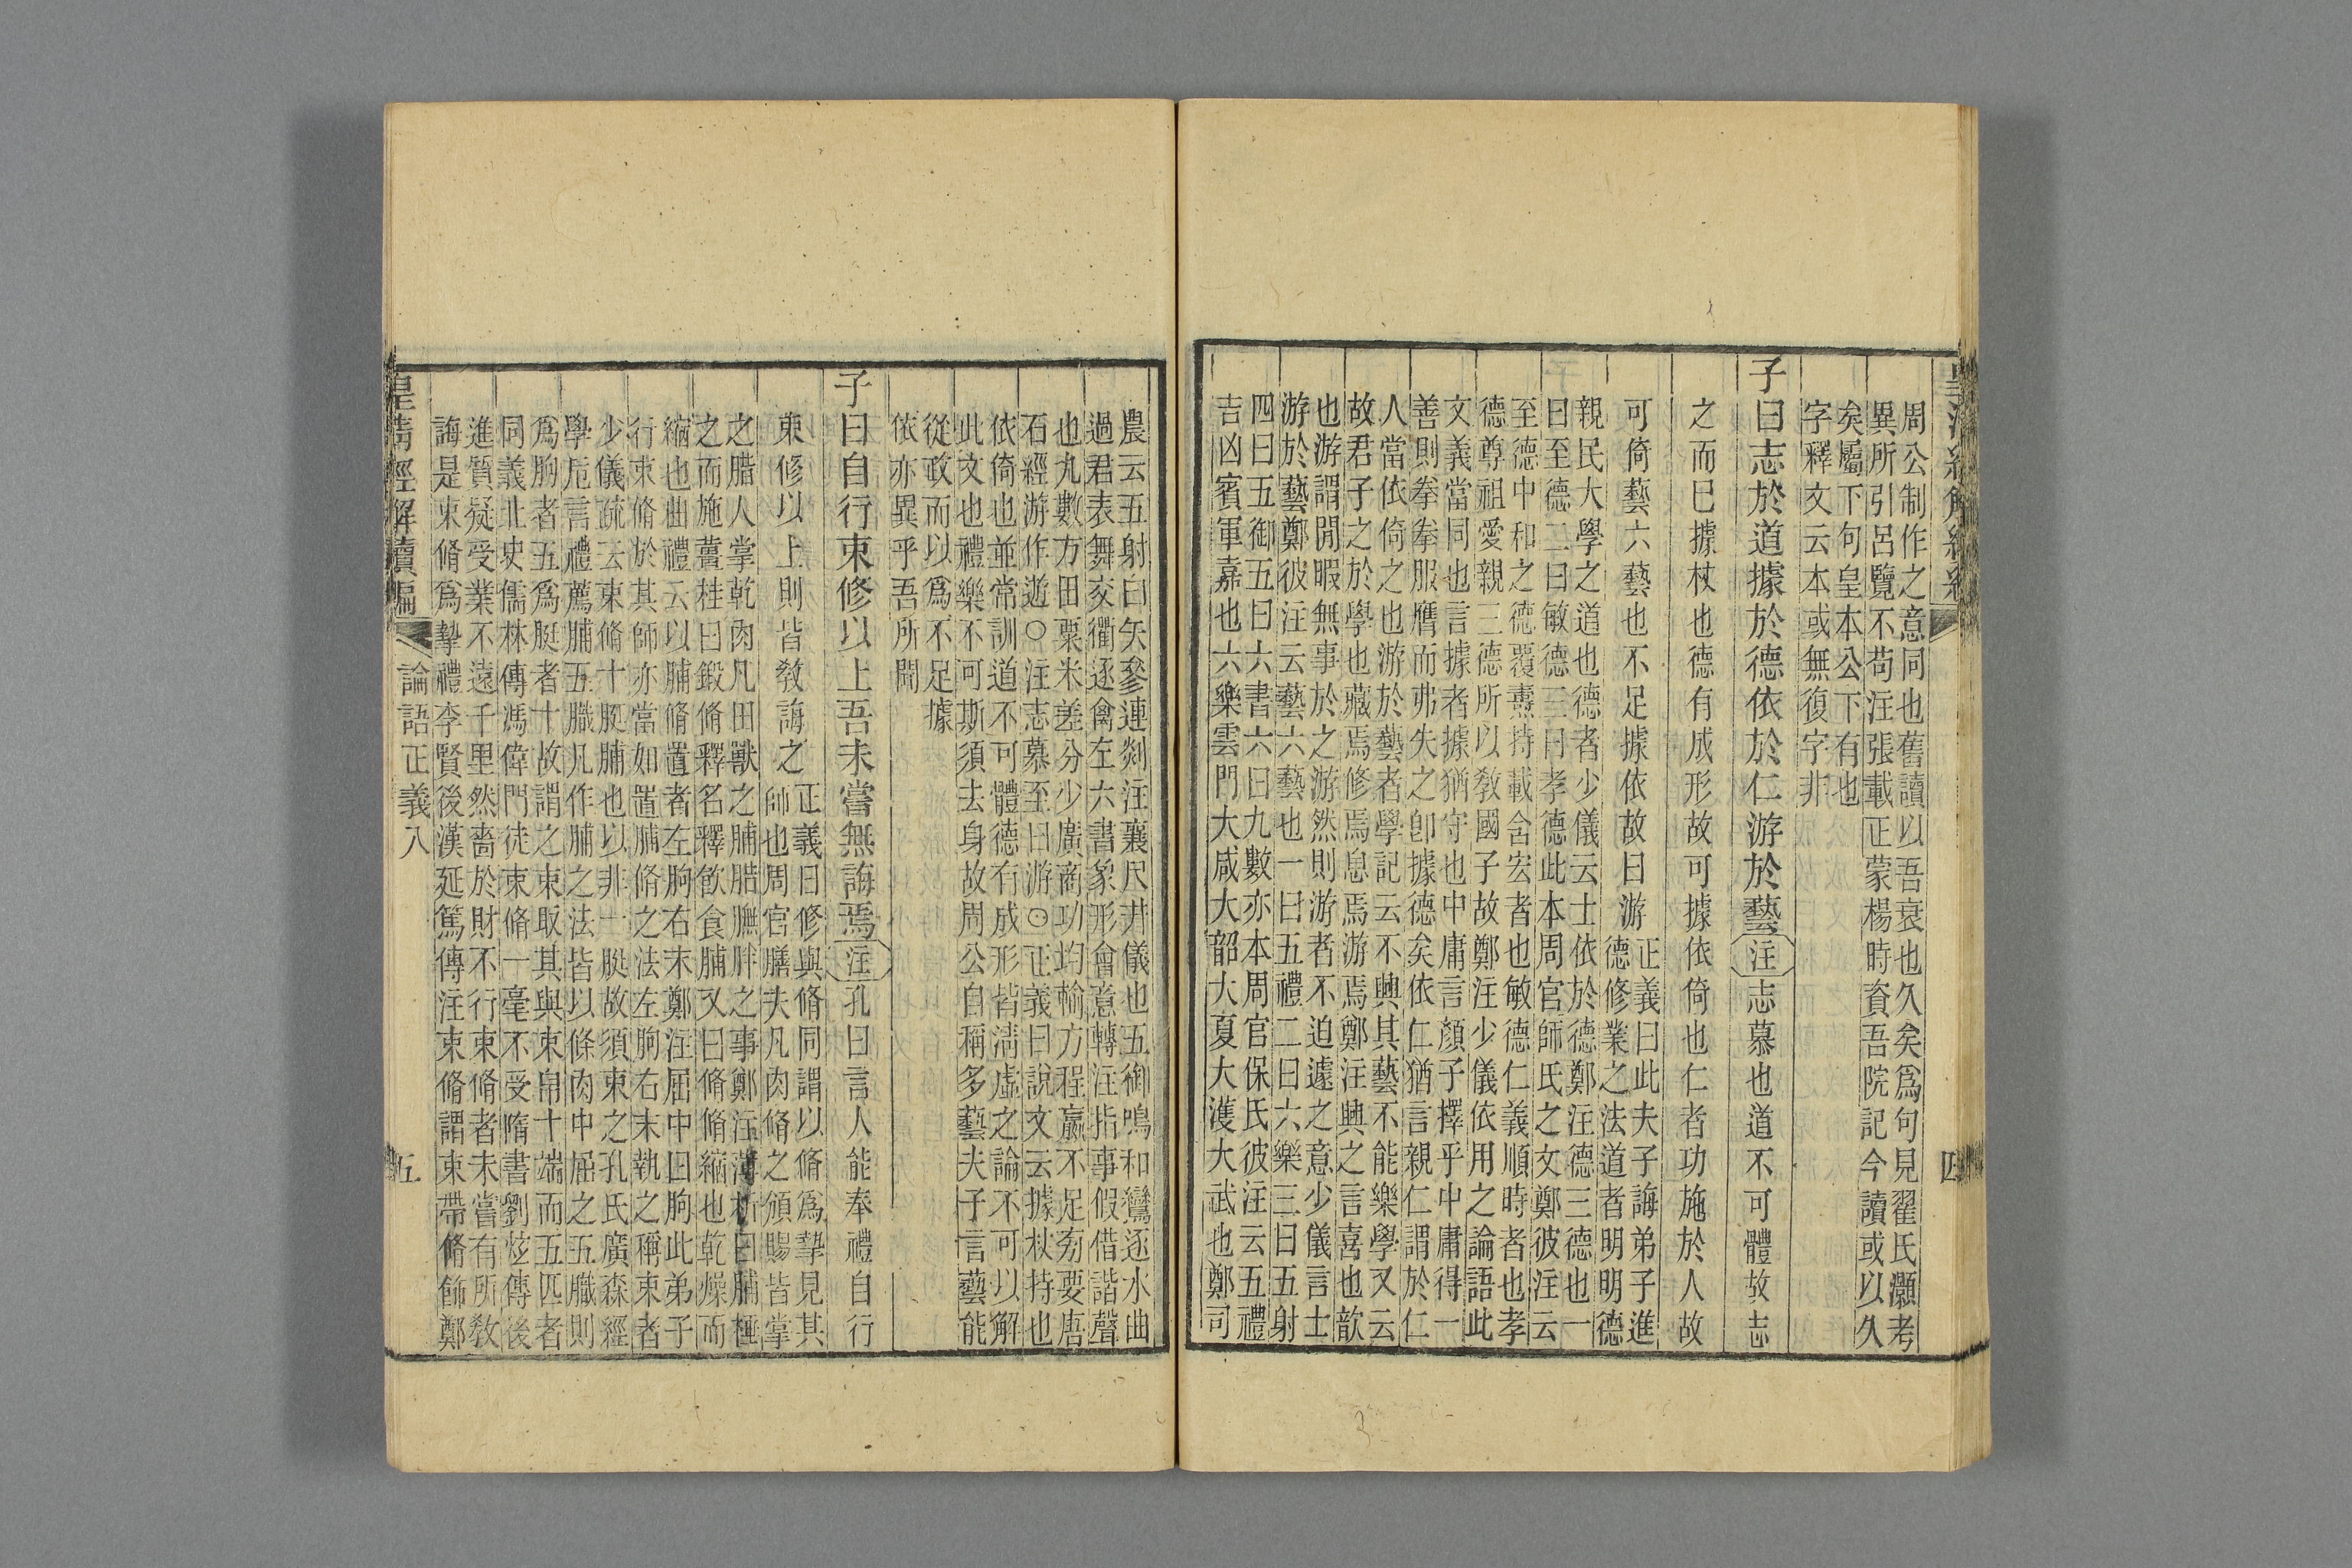 皇清經解續編
四
周公制作之意同也舊讀以吾衰也久矣爲句見翟氏灝考
異所引呂覽不苟注張載正蒙楊時資吾院記今讀或以久
矣屬下句皇本公下有也
字釋文云本或無復字非
子曰志於道據於德依於仁游於藝注志慕也道不可體故志
之而巳據杖也德有成形故可據依倚也仁者功施於人故
可倚藝六藝也不足據依故曰游
正義曰此夫子誨弟子進
德修業之法道者明明德
親民大學之道也德者少儀云士依於德鄭注德三德也一
曰至德二曰敏德三曰孝德此本周官師氏之文鄭彼注云
至德中和之德覆燾持載含宏者也敏德仁義順時者也孝
德尊祖愛親三德所以敎國子故鄭注少儀依用之論語此
文義當同也言據者據猶守也中庸言顏子擇乎中庸得一
善則拳拳服膺而弗失之卽據德矣依仁猶言親仁謂於仁
人當依倚之也游於藝者學記云不興其藝不能樂學又云
故君子之於學也藏焉修焉息焉游焉鄭注興之言喜也歆
也游謂閒暇無事於之游然則游者不迫遽之意少儀言士
游於藝鄭彼注云藝六藝也一曰五禮二曰六樂三曰五射
四曰五御五曰六書六曰九數亦本周官保氏彼注云五禮
吉凶賓軍嘉也六樂雲門大咸大韶大夏大濩大武也鄭司
農云五射白矢參連剡注襄尺井儀也五御鳴和鸞逐水曲
過君表舞交衢逐禽左六書象形會意轉注指事假借諧聲
也九數方田粟米差分少廣商功均輸方程贏不足旁要唐
石經游作遊〇注志慕至曰游〇正義曰說文云據杖持也
依倚也並常訓道不可體德有成形皆淸虛之論不可以解
此文也禮樂不可斯須去身故周公自稱多藝夫子言藝能
從政而以爲不足據
依亦異乎吾所聞
子曰自行束修以上吾未嘗無誨焉注孔曰言人能奉禮自行
束修以上則皆敎誨之
正義曰修與脩同謂以脩爲摯見其
師也周官膳夫凡肉脩之頒賜皆掌
之腊人掌乾肉凡田獸之脯腊膴胖之事鄭注薄析曰脯棰
之而施薑桂曰鍛脩釋名釋飮食脯又曰脩脩縮也乾燥而
縮也曲禮云以脯脩置者左朐右末鄭注屈中曰朐此弟子
行束脩於其師亦當如置脯脩之法左朐右末執之稱束者
少儀疏云束脩十脡脯也以非一脡故須束之孔氏廣森經
學卮言禮薦脯五膱凡作脯之法皆以條肉中屈之五膱則
爲朐者五爲脡者十故謂之束取其與束帛十端而五匹者
同義北史儒林傳馮偉門徒束脩一毫不受隋書劉炫傳後
進質疑受業不遠千里然嗇於財不行束脩者未嘗有所敎
誨是束脩爲摯禮李賢後漢延篤傳注束脩謂束帶脩飾鄭
皇清經解續編
論語正義八
五